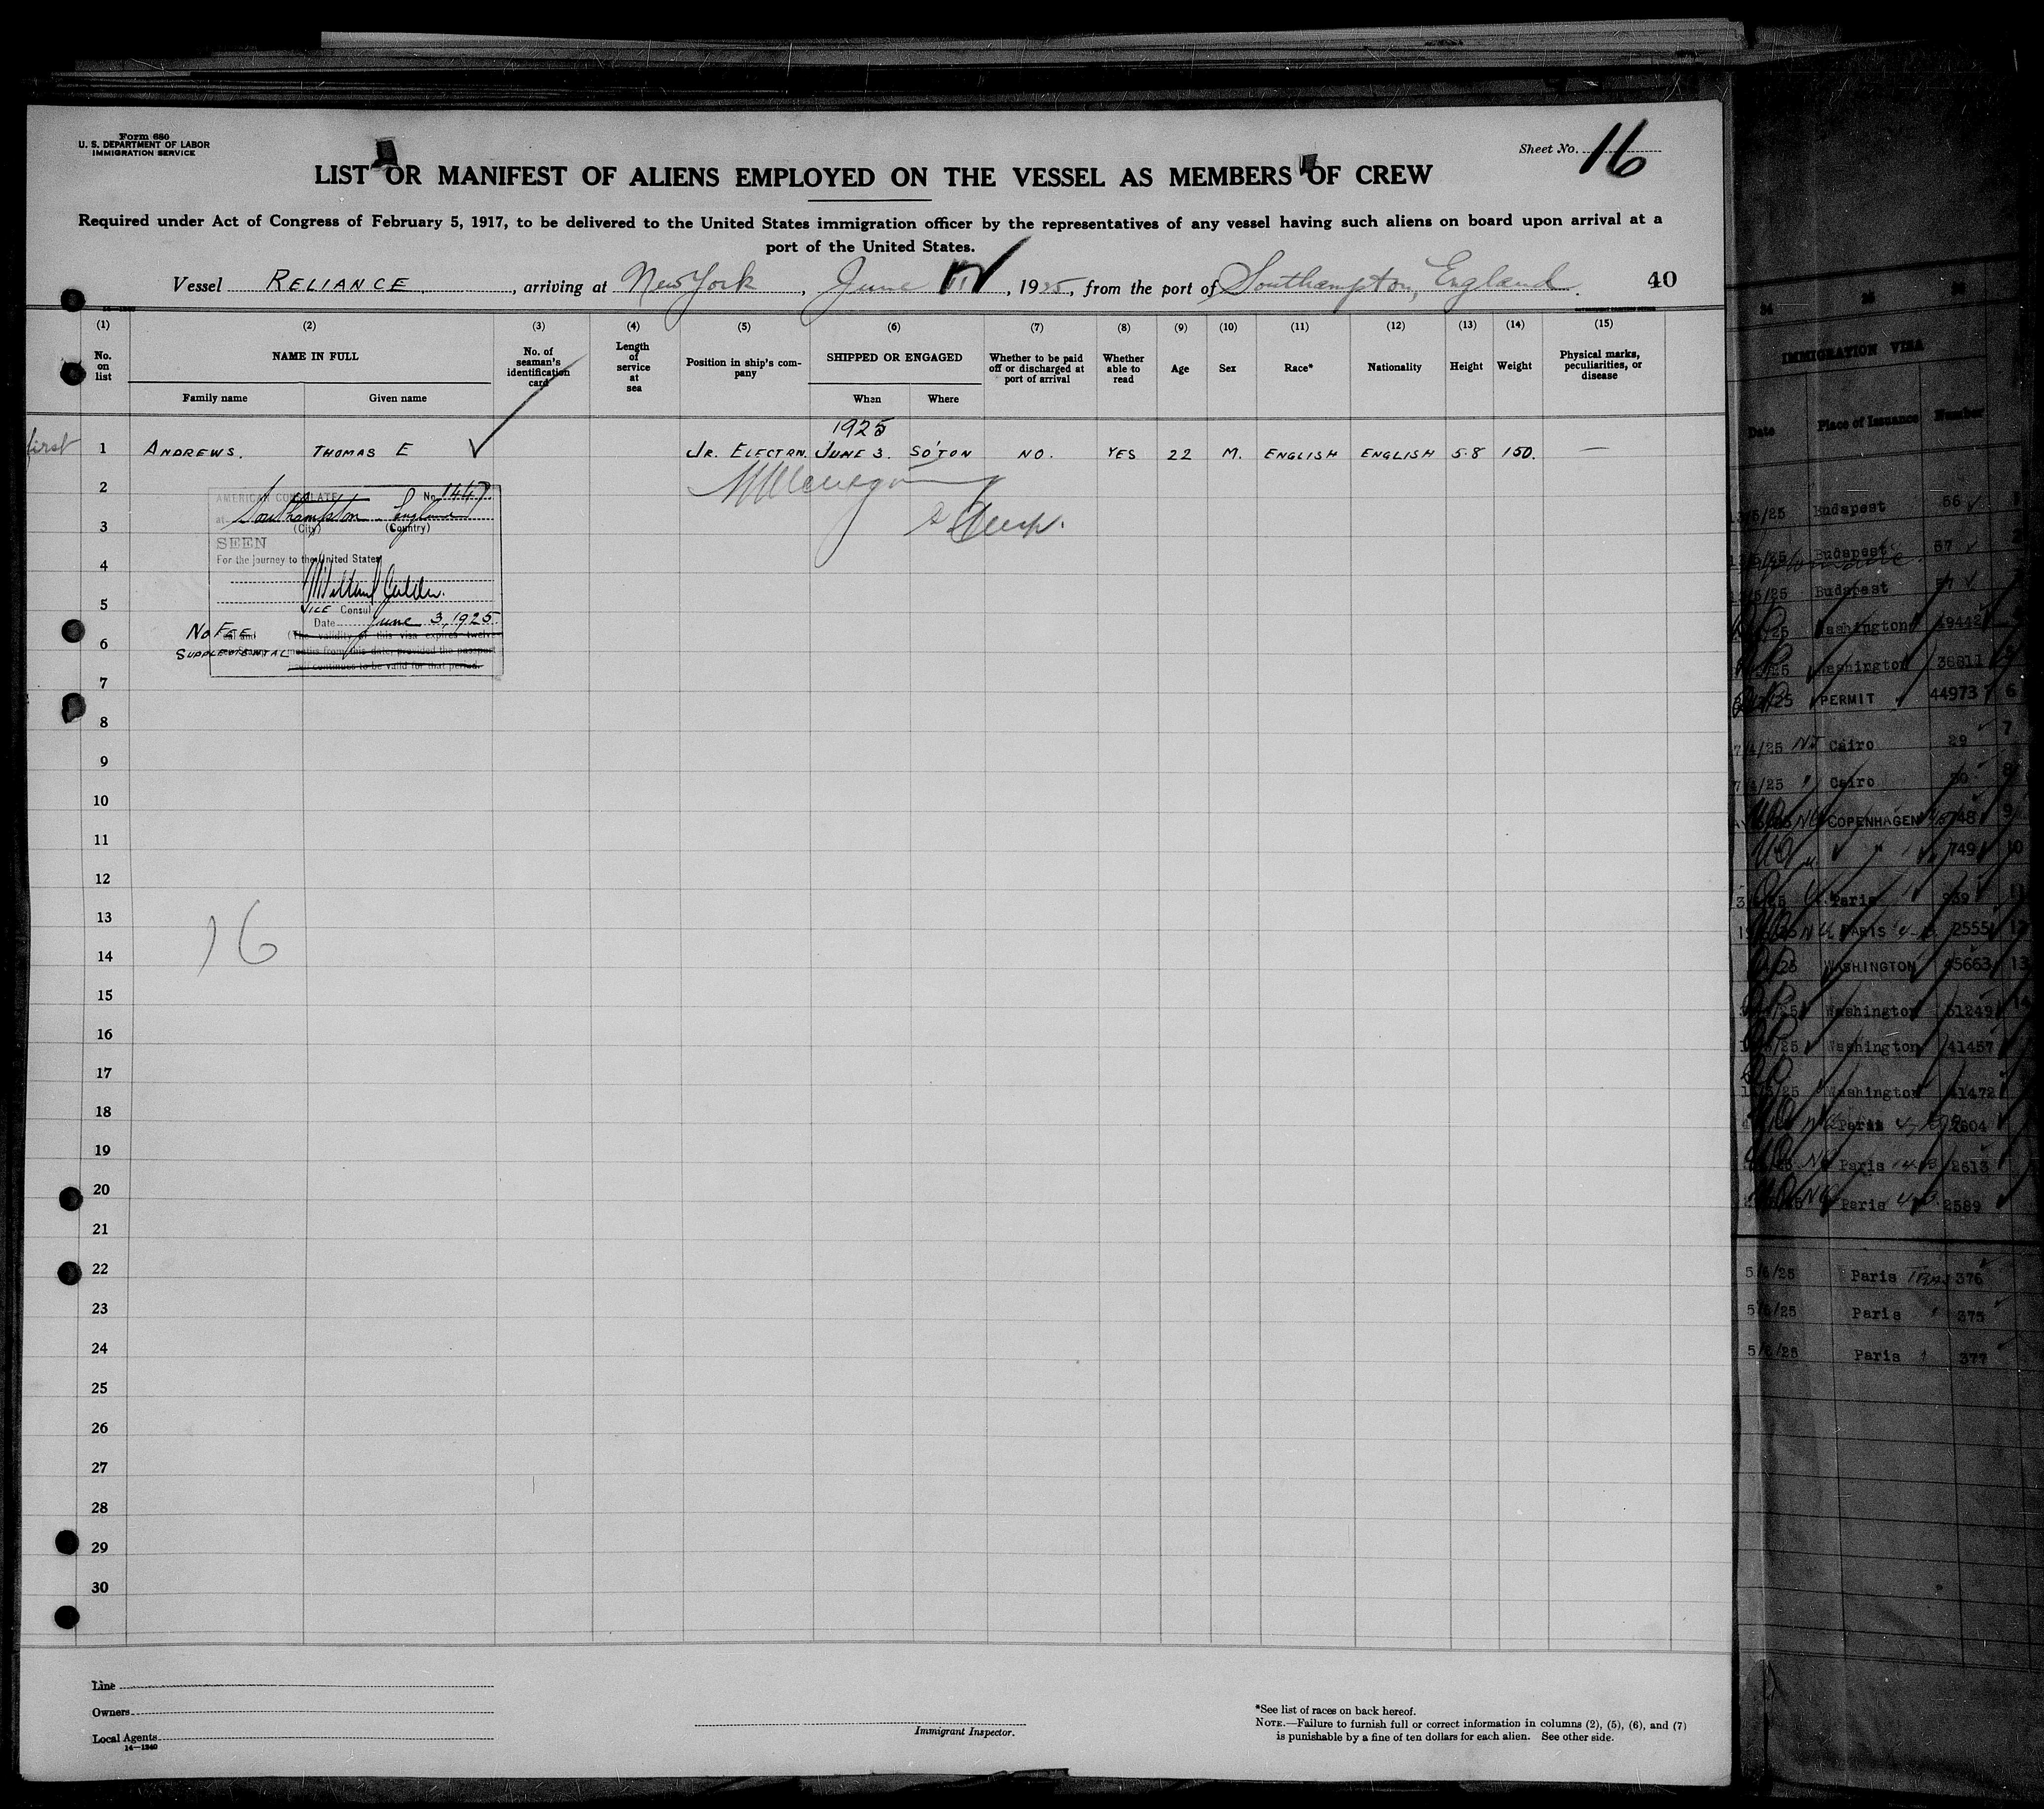 Form 680
U. S. DEPARTMENT OF LABOR
IMMIGRATION SERVICE
Sheet No. 16
LIST OR MANIFEST OF ALIENS EMPLOYED ON THE VESSEL AS MEMBERS OF CREW
Required under Act of Congress of February 5, 1917, to be delivered to the United States immigration officer by the representatives of any vessel having such aliens on board upon arrival at a
port of the United States.
Vessel RELIANCE, arriving at New York, June, 1925, from the port of Southampton, England. 40
(1) (2) (3) (4) (5) (6) (7) (8) (9) (10) (11) (12) (13) (14) (15)
No. on list
NAME IN FULL
Family name
Given name
No. of seaman's identification card
Length of service at sea
Position in ship's company
SHIPPED OR ENGAGED
When
Where
Whether to be paid off or discharged at port of arrival
Whether able to read
Age
Sex
Race*
Nationality
Height
Weight
Physical marks, peculiarities, or disease
1925
first 1 ANDREWS. THOMAS E JR. ELECTRN. JUNE 3. SO'TON NO. YES 22 M. ENGLISH ENGLISH 5.8 150. —
2
3
4
5
6
7
8
9
10
11
12
13
14
15
16
17
18
19
20
21
22
23
24
25
26
27
28
29
30
AMERICAN CONSULATE No. 1447
at Southampton England
(City) (Country)
SEEN
For the journey to the United States
VICE Consul
Date June 3, 1925.
NO FEE (The validity of this visa expires twelve
SUPPLEMENTAL months from this date, provided the passport
continues to be valid for that period.
16
Line
Owners
Local Agents
14—1240
Immigrant Inspector.
*See list of races on back hereof.
NOTE.—Failure to furnish full or correct information in columns (2), (5), (6), and (7)
is punishable by a fine of ten dollars for each alien. See other side.
IMMIGRATION VISA
Date Place of Issuance Number
Budapest 56
Budapest 57
Budapest
Washington 49442
Washington 36811
PERMIT 44973 6
Cairo 29 7
Cairo 8
COPENHAGEN 9
" 749 10
Paris
PARIS 2555
WASHINGTON 45663 13
Washington 51249 14
Washington 41457
Washington 41472
Paris 2604
Paris 2613
Paris 2589
5/6/25 Paris 376
5/6/25 Paris 375
5/6/25 Paris 377